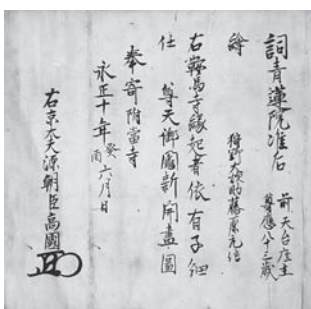 詞青蓮院准后
前天台座主
尊應八十三歳
繪
狩野大炊助藤原元信
右鞍馬寺縁起者依有子細
仕 尊天御圖新開畫圖
奉寄附當寺
永正十年癸酉六月日
右京大夫源朝臣高國